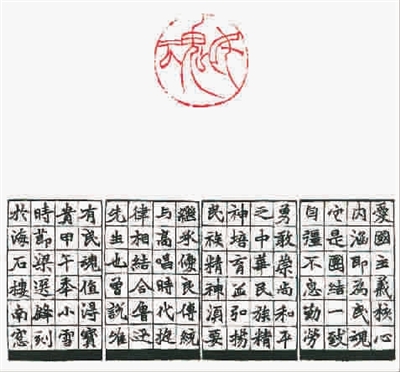 民魂
愛國主義核心
内涵即為民魂
它是團結一致
自彊不息勤勞
勇敢崇尚和平
之中華民族精
神培育並弘揚
民族精神須要
繼承優良傳統
與高唱時代旋
律相結合魯迅
先生也曾說唯
有民魂值得寶
貴甲午季小雪
時節梁選鋒刻
於海石樓南窗